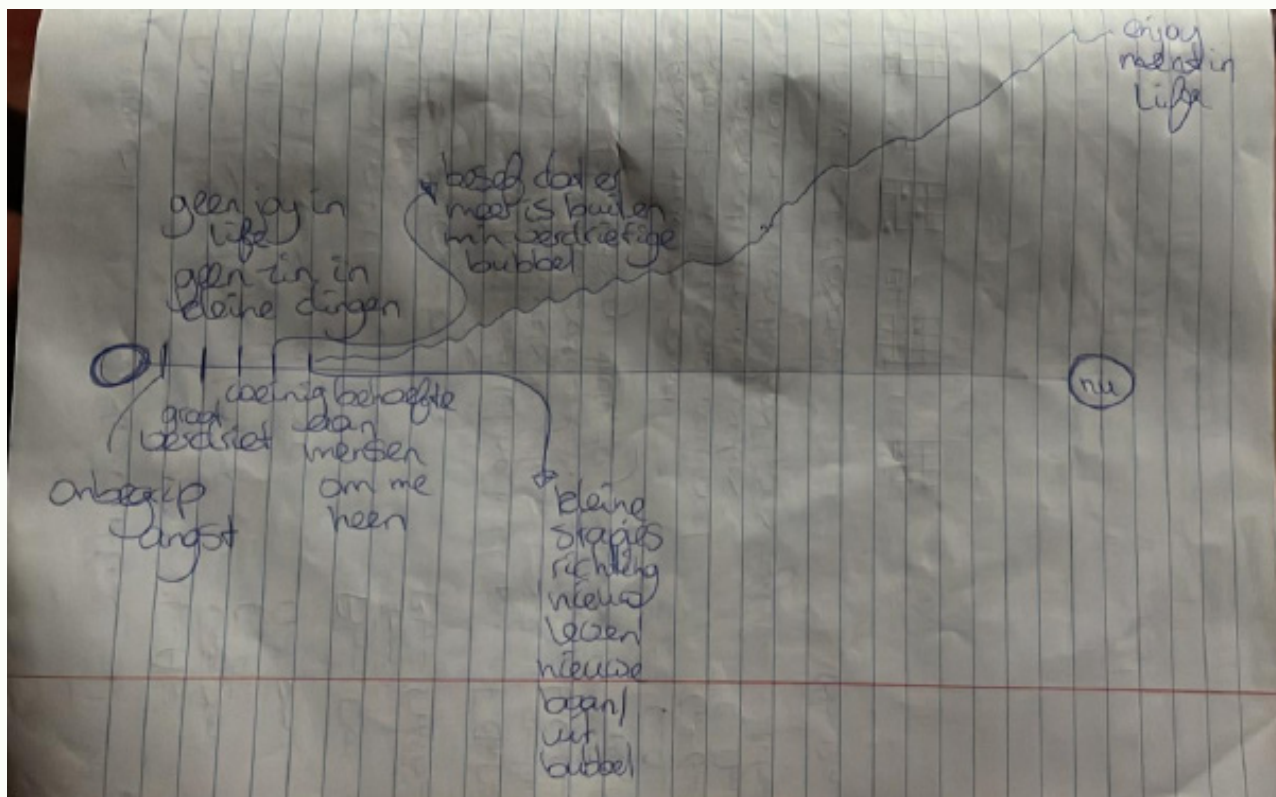 enjoy
life
geen joy in
life
geen zin in
kleine dingen
besef dat er
meer is buiten
m'n verdrietige
bubbel
nu
onbegrip
angst
groot
verdriet
weinig behoefte
aan
mensen
om me
heen
kleine
stapjes
richting
nieuw
leven
nieuwe
baan/
uit
bubbel